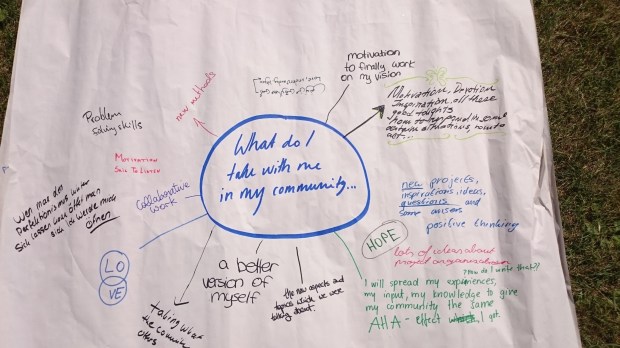 What do I
take with me
in my community...
motivation
to finally work
on my vision
Motivation, Devotion
Inspiration, all these
good
how to
new projects,
inspirations, ideas,
questions and
some answers
positive thinking
HOPE
Lots of ideas about
project organisation
(How do I write that??)
I will spread my experiences,
my input, my knowledge to give
my community the same
AHA - effect I got.
the new aspects and
topics which we were
talking about.
a better
version of
myself
taking what
the community
offers
LO
VE
Wenn man den
Perfektionismus
Sich lassen
sich
öffnen
Collaborative
work
Motivation
Problem
solving skills
new methods